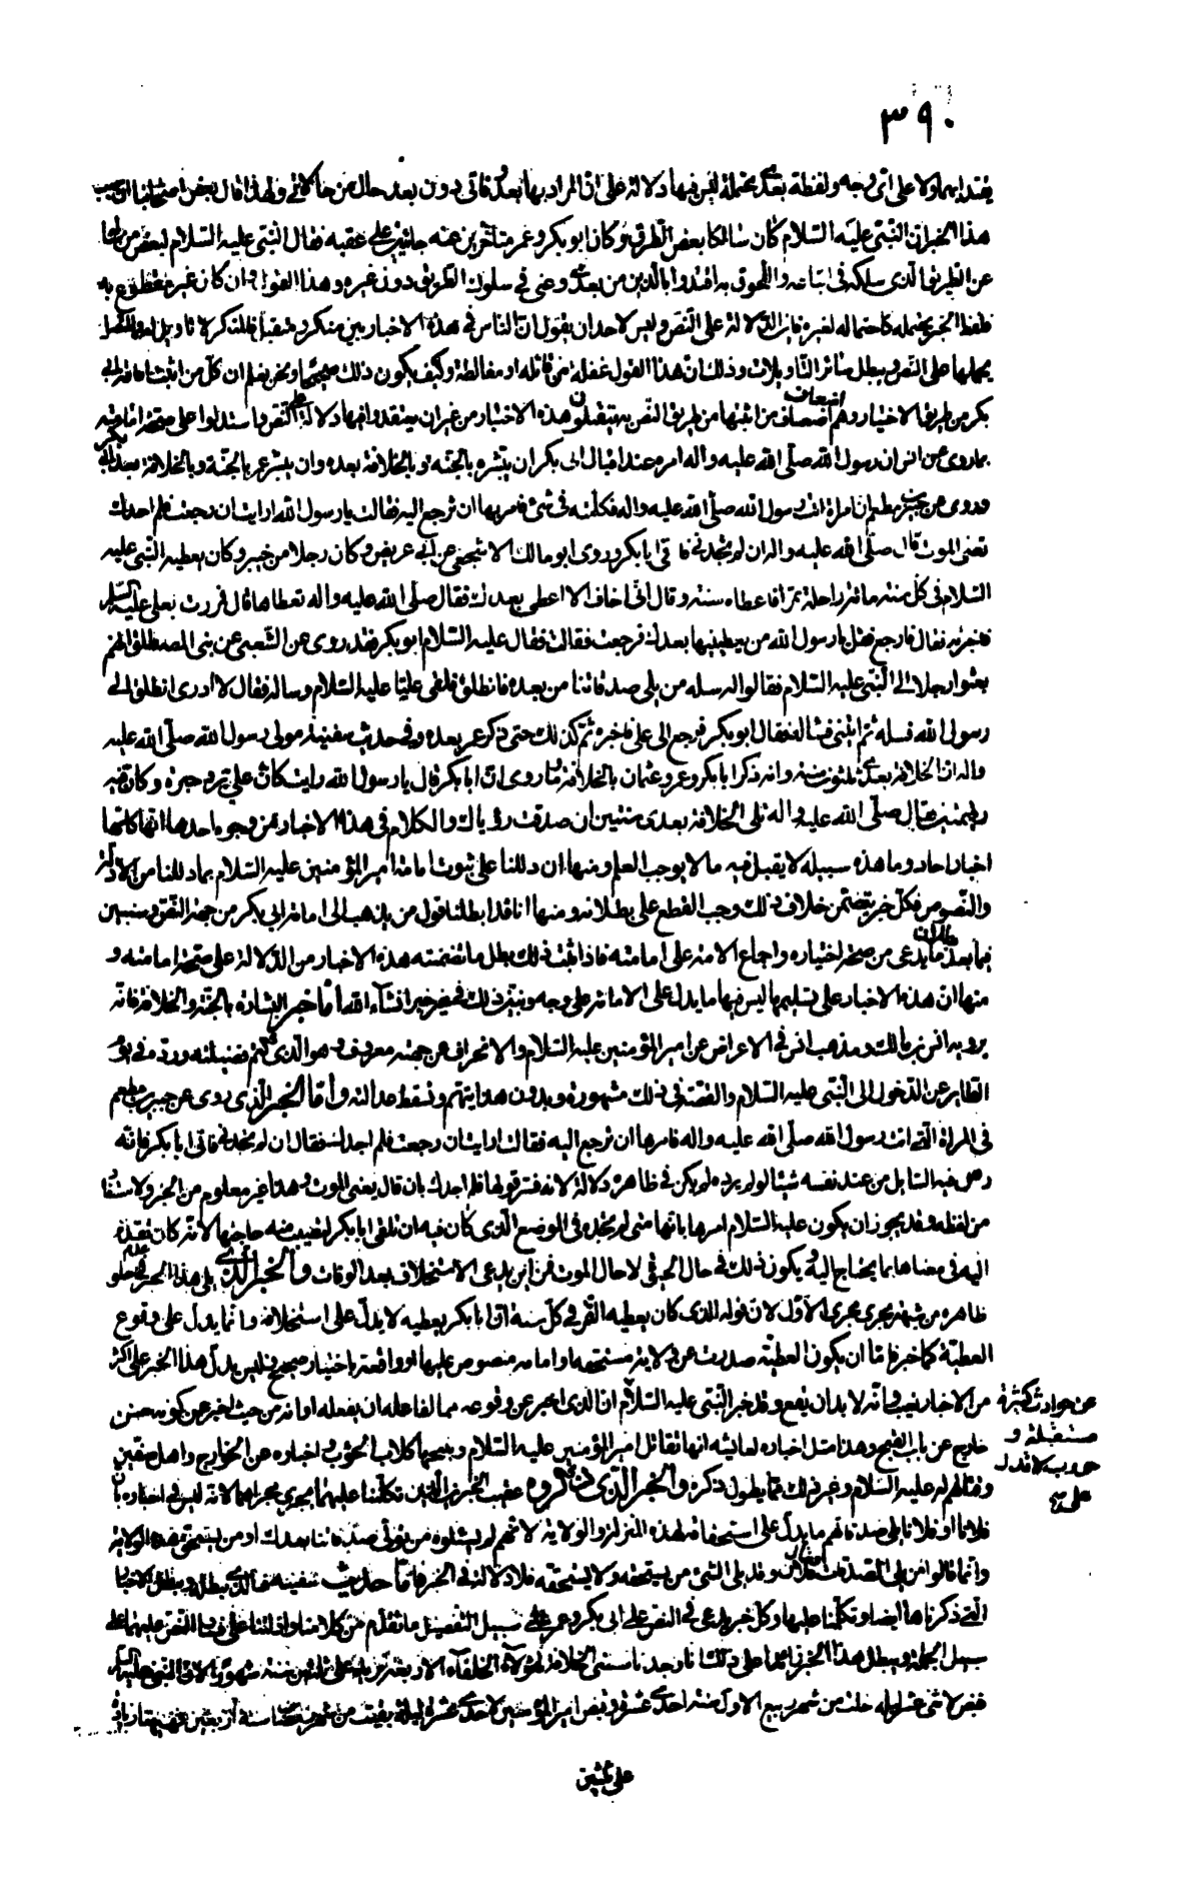 ٣٩٠
يقتدا بهما ولا على اى وجه ولفظة بعدى محتملة ليس فيها دلالة على ان المراد بها بعد وفاتى دون بعد حال من حالاتى ولهذا قال بعض اصحابنا ان سبب
هذا الخبر ان النبى عليه السلام كان سالكا بعض الطرق وكان ابو بكر وعمر متاخرين عنه جائيين على عقبه فقال النبى عليه السلام لبعض من
عن الطريق الذى سلكه فى اتباعه واللحوق به اقتدوا بالذين من بعدى وعنى فى سلوك الطريق دون غيره وهذا القول وان كان غير مقطوع به
فلفظ الخبر يحتمله كاحتماله لغيره فاين الدلالة على النص وليس لاحد ان يقول ان الناس فى هذه الاخبار بين منكر ومتقبل فالمنكر لا تاويل له والمتقبل
يحملها على النص ويبطل سائر التاويلات وذلك ان هذا القول غفلة من قائله او مغالطة وكيف يكون ذلك صحيحا ونحن نعلم ان كل من اثبت امامة ابى
بكر من طريق الاختيار وهم اضعاف من اثبتها من طريق النص يتقبلون هذه الاخبار من غير ان يعتقدوا فيها دلالة على النص واستدلوا على صحة امامته
بما روى عن انس ان رسول الله صلى الله عليه واله امره عند اقبال ابى بكر ان يبشره بالجنة وبالخلافة بعده وان يبشر عمر بالجنة وبالخلافة بعد ابى بكر
وروى عن جبير بن مطعم ان امراة اتت رسول الله صلى الله عليه واله فكلمته فى شئ فامر بها ان ترجع اليه فقالت يا رسول الله ارايت ان رجعت فلم اجدك
تعنى الموت قال صلى الله عليه واله ان لم تجدينى فاتى ابا بكر وروى ابو مالك الاشجعى عن ابى عريض وكان رجلا من خيبر وكان يعطيه النبى عليه
السلام فى كل سنة مائة راحلة تمرا فاعطاه سنة وقال انى اخاف الا اعطى بعدك فقال صلى الله عليه واله تعطاها قال فمررت بعلى عليه السلم
فاخبرته فقال فارجع فقل يا رسول الله من يعطينيها بعدك فرجعت فقالت فقال عليه السلام ابو بكر وقد روى عن الشعبى عن بنى المصطلق انهم
بعثوا رجلا الى النبى عليه السلام فقالوا له سله من يلى صدقاتنا من بعده فانطلق فلقى عليا عليه السلام وساله فقال لا ادرى انطلق الى
رسول الله فسله ثم ائتنى فساله فقال ابو بكر فرجع الى على فاخبره ثم كذلك حتى ذكر عمر بعده وفى حديث سفينة مولى رسول الله صلى الله عليه
واله ان الخلافة بعدى ثلثون سنة وانه ذكر ابا بكر وعمر وعثمان بالخلافة وروى ان ابا بكر قال يا رسول الله رايت كان على برد حبرة وكان فيه
رقمتين فقال صلى الله عليه واله تلى الخلافة بعدى سنتين ان صدقت رؤياك والكلام فى هذه الاخبار من وجوه احدها انها كلها
اخبار احاد وما هذه سبيله لا يقبل فيه ما لا يوجب العلم ومنها ان دللنا على ثبوت امامة امير المؤمنين عليه السلام بما دللنا من الادلة
والنصوص فكل خبر تضمن خلاف ذلك وجب القطع على بطلانه ومنها انا قد ابطلنا قول من يذهب الى امامة ابى بكر من جهة النص وسنبين
فيما بعد بطلان ما يدعى من صحة اختياره واجماع الامة على امامته فاذا ثبت ذلك بطل ما تضمنته هذه الاخبار من الدلالة على صحة امامته و
منها ان هذه الاخبار على تسليمها ليس فيها ما يدل على الامامة على وجه ونبين ذلك فى خبر خبر انشاء الله اما خبر البشارة بالجنة والخلافة فانه
يرويه انس بن مالك ومذهب انس فى الاعراض عن امير المؤمنين عليه السلام والانحراف عن جهته معروف وهو الذى كتم فضيلته ورده فى يوم
الطاير عن الدخول الى النبى عليه السلام والقصة فى ذلك مشهورة وبدون هذا يتهم وتسقط عدالته واما الخبر الذى روى عن جبير بن مطعم
فى المراة التى اتت رسول الله صلى الله عليه واله فامرها ان ترجع اليه فقالت ارايت ان رجعت فلم اجدك فقال ان لم تجدينى فاتى ابا بكر فانه
رمى فيه السايل من عند نفسه شيئا لو لم يرده لم يكن فى ظاهره دلالة لانه فسر قولها فلم اجدك بان قال يعنى الموت وهذا غير معلوم من الخبر ولا مستفاد
من لفظه وقد يجوز ان يكون عليه السلام امرها بانها متى لم تجده فى الموضع الذى كان فيه ان تلقى ابا بكر لتصيب منه حاجتها لانه كان تقدم
اليه فى معناها بما يحتاج اليه ويكون ذلك فى حال الحيوة لا حال الموت فمن اين يدعى الاستخلاف بعد الوفات والخبر الذى يلى هذا الخبر فى خلو
ظاهره من شبهة يجرى مجرى الاول لان قوله للذى كان يعطيه التمر فى كل سنة ان ابا بكر يعطيه لا يدل على استخلافه وانما يدل على وقوع
العطية كما خبر فاما ان يكون العطية صدرت عن ولاية مستحقة او امامة منصوص عليها او واقعة باختيار صحيح فليس يدل هذا الخبر على اكثر
من الاخبار بغيب وانه لا بد ان يقع وقد خبر النبى عليه السلام
عن حوادث كثيرة
مستقبلة و
لا تدل
على
ان الذى اخبر عن وقوعه مما لفاعله ان يفعله او انه من حيث اخبر عن كونه حسن
خارج عن باب القبح وهذا مثل اخباره لعايشه انها تقاتل امير المؤمنين عليه السلام وينبحها كلاب الحوئب واخباره عن الخوارج واهل صفين
وقتالهم له عليه السلام وغير ذلك مما يطول ذكره والخبر الذى ذكروه عقيب الخبرين اللذين تكلمنا عليهما يجرى مجراهما لانه ليس فى اخباره بان
فلانا او فلانا يلى صدقاتهم ما يدل على استحقاقه لهذه المنزلة والولاية لانهم لم يسئلوه من نولى صدقاتنا بعدك او من يستحق هذه الولاية
وانما قالوا من يلى الصدقات فقال فلان وقد يلى الشئ من يستحقه ولا يستحقه فلا دلالة فى الخبر فاما حديث سفينه فالذى يبطله ويبطل الاخبار
التى ذكرناها ايضا وتكلمنا عليها وكل خبر يدعى فى النص على ابى بكر وعمر على سبيل التفصيل ما تقدم من كلامنا وادلتنا على فساد النص عليهما على
سبيل الجملة ويبطل هذا الخبر زايدا على ذلك انا وجدنا سنى الخلافة لهؤلاء الخلفاء الاربعة تزيد على ثلثين سنة شهورا لان النبى عليه السلم
قبض لاثنتى عشرة ليلة خلت من شهر ربيع الاول سنة احدى عشرة وقبض امير المؤمنين لاحدى عشرة ليلة بقيت من شهر رمضان سنة اربعين فهيهنا زيادة
على ثلثين